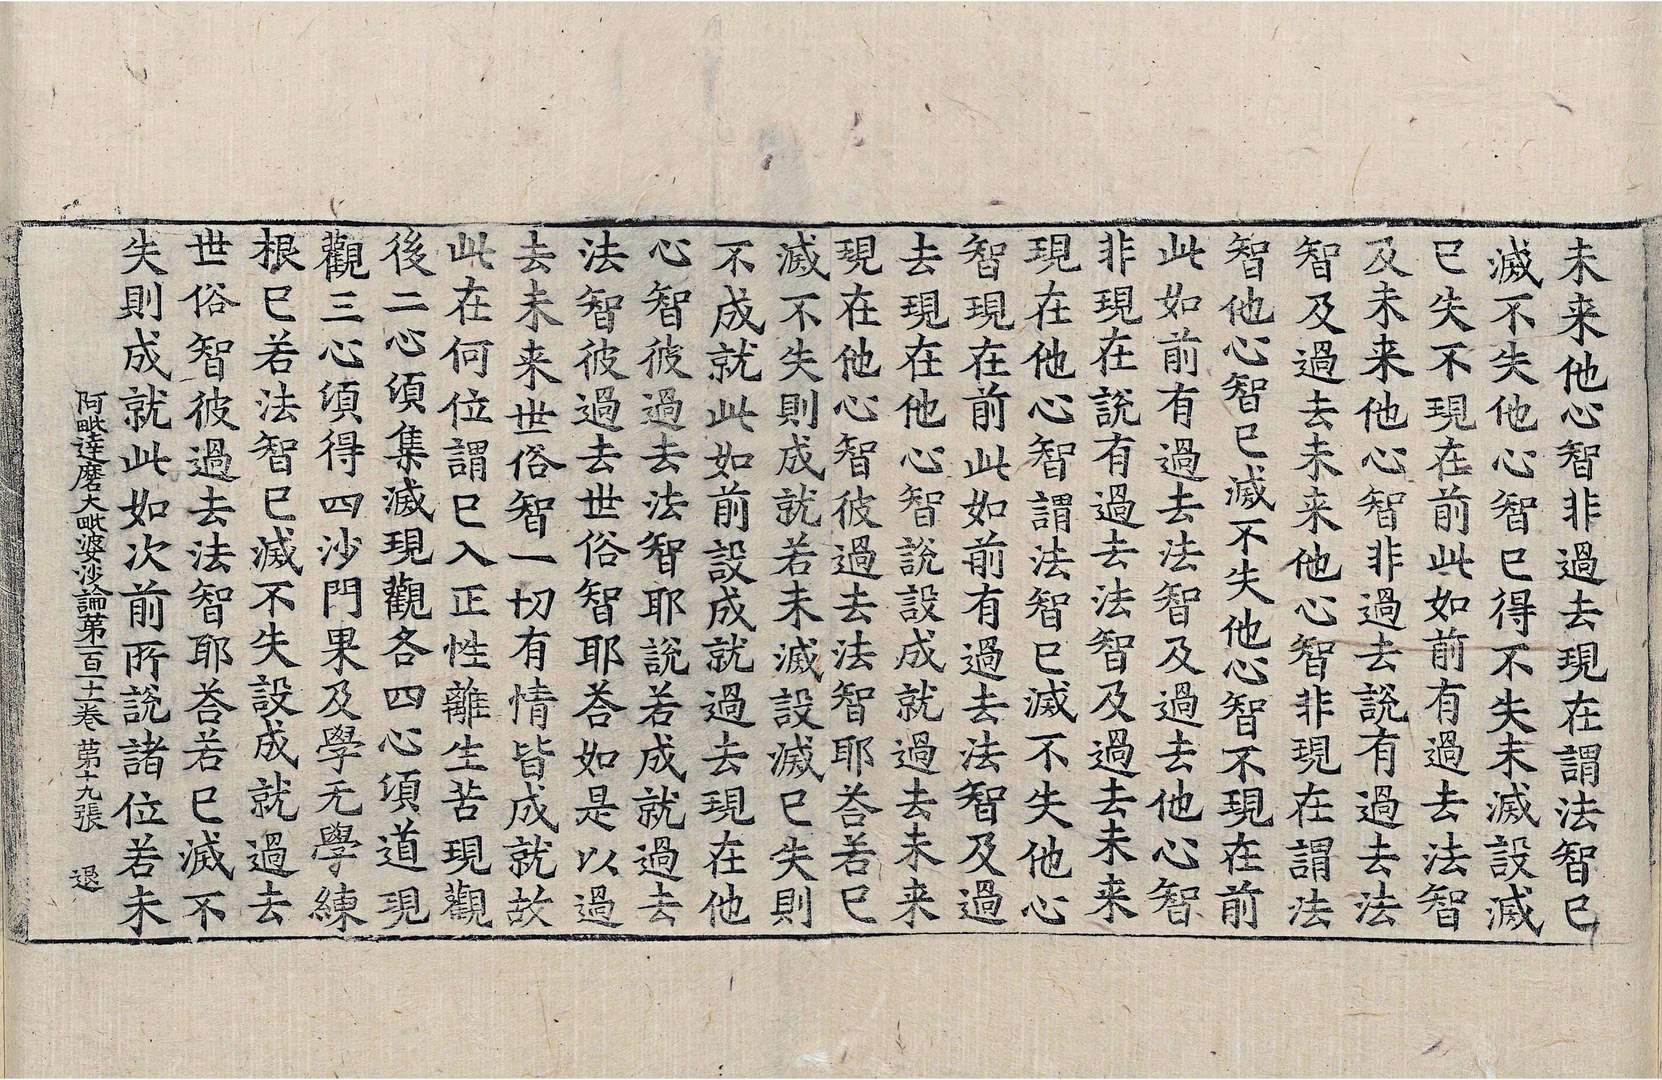 未来他心智非過去現在謂法智已
滅不失他心智已得不失未滅設滅
已失不現在前此如前有過去法智
及未来他心智非過去說有過去法
智及過去未来他心智非現在謂法
智他心智已滅不失他心智不現在前
此如前有過去法智及過去他心智
非現在說有過去法智及過去未来
現在他心智謂法智已滅不失他心
智現在前此如前有過去法智及過
去現在他心智說設成就過去未来
現在他心智彼過去法智耶荅若已
滅不失則成就若未滅設滅已失則
不成就此如前設成就過去現在他
心智彼過去法智耶說若成就過去
法智彼過去世俗智耶荅如是以過
去未来世俗智一切有情皆成就故
此在何位謂已入正性離生苦現觀
後二心須集滅現觀各四心須道現
觀三心須得四沙門果及學无學練
根已若法智已滅不失設成就過去
世俗智彼過去法智耶荅若已滅不
失則成就此如次前所說諸位若未
阿毗達磨大毗婆沙論第一百一十一卷 第十九張 退